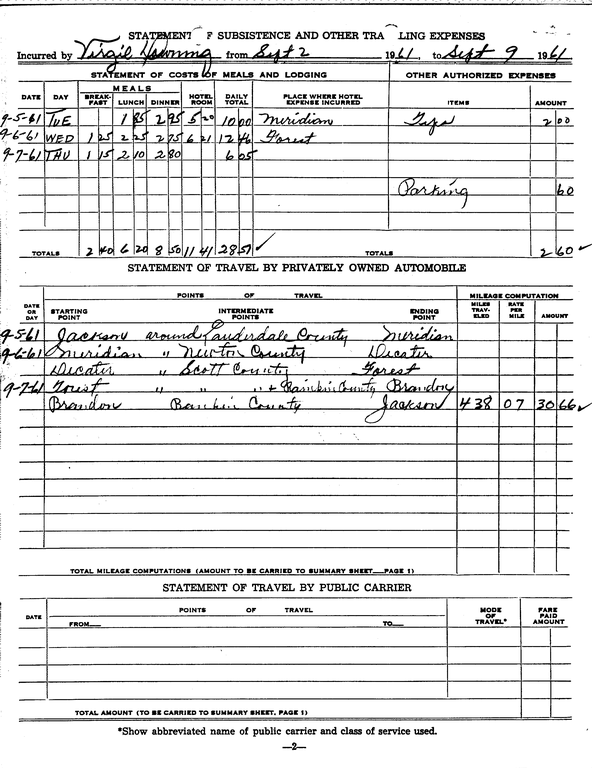 STATEMENT F SUBSISTENCE AND OTHER TRA LING EXPENSES
Incurred by Virgil Downing from Sept 2 1961, to Sept 9 1961
STATEMENT OF COSTS OF MEALS AND LODGING OTHER AUTHORIZED EXPENSES
MEALS
DATE DAY BREAK-FAST LUNCH DINNER HOTEL ROOM DAILY TOTAL PLACE WHERE HOTEL EXPENSE INCURRED ITEMS AMOUNT
9-5-61 TUE 1 85 2 95 5 20 10 00 Meridian Tips 2 00
9-6-61 WED 1 25 2 25 2 75 6 21 12 46 Forest
9-7-61 THU 1 15 2 10 2 80 6 05
Parking 60
TOTALS 2 40 6 20 8 50 11 41 28 51 ✓ TOTALS 2 60 ✓
STATEMENT OF TRAVEL BY PRIVATELY OWNED AUTOMOBILE
POINTS OF TRAVEL MILEAGE COMPUTATION
DATE OR DAY STARTING POINT INTERMEDIATE POINTS ENDING POINT MILES TRAV-ELED RATE PER MILE AMOUNT
9-5-61 Jackson around Lauderdale County Meridian
9-6-61 Meridian " Newton County Decater
Decater " Scott County Forest
9-7-61 Forest " " " + Rankin County Brandon
Brandon Rankin County Jackson 438 07 30 66 ✓
TOTAL MILEAGE COMPUTATIONS (AMOUNT TO BE CARRIED TO SUMMARY SHEET PAGE 1)
STATEMENT OF TRAVEL BY PUBLIC CARRIER
DATE POINTS OF TRAVEL MODE OF TRAVEL* FARE PAID AMOUNT
FROM TO
TOTAL AMOUNT (TO BE CARRIED TO SUMMARY SHEET, PAGE 1)
*Show abbreviated name of public carrier and class of service used.
—2—